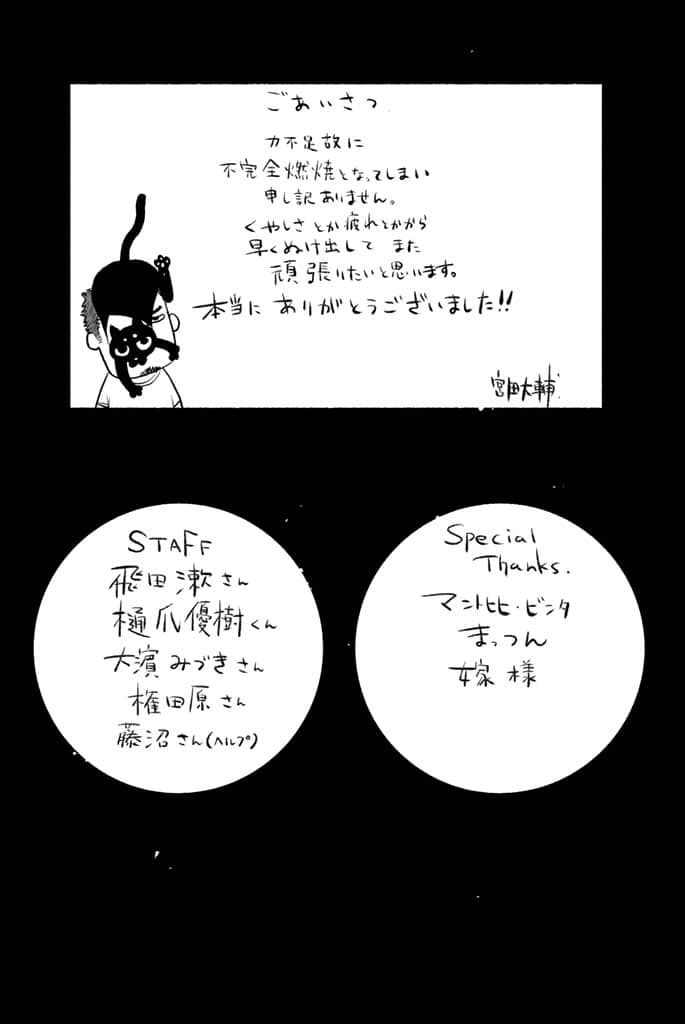 ごあいさつ
力不足故に
不完全燃焼となってしまい
申し訳ありません。
くやしさとか疲れとかから
早くぬけ出して また
頑張りたいと思います。
本当に ありがとうございました!!
宮田大輔
STAFF
飛田漱さん
樋爪優樹くん
大濱みづきさん
権田原さん
藤沼さん(ヘルプ)
Special
Thanks.
マントヒヒ・ビンタ
まっつん
嫁様